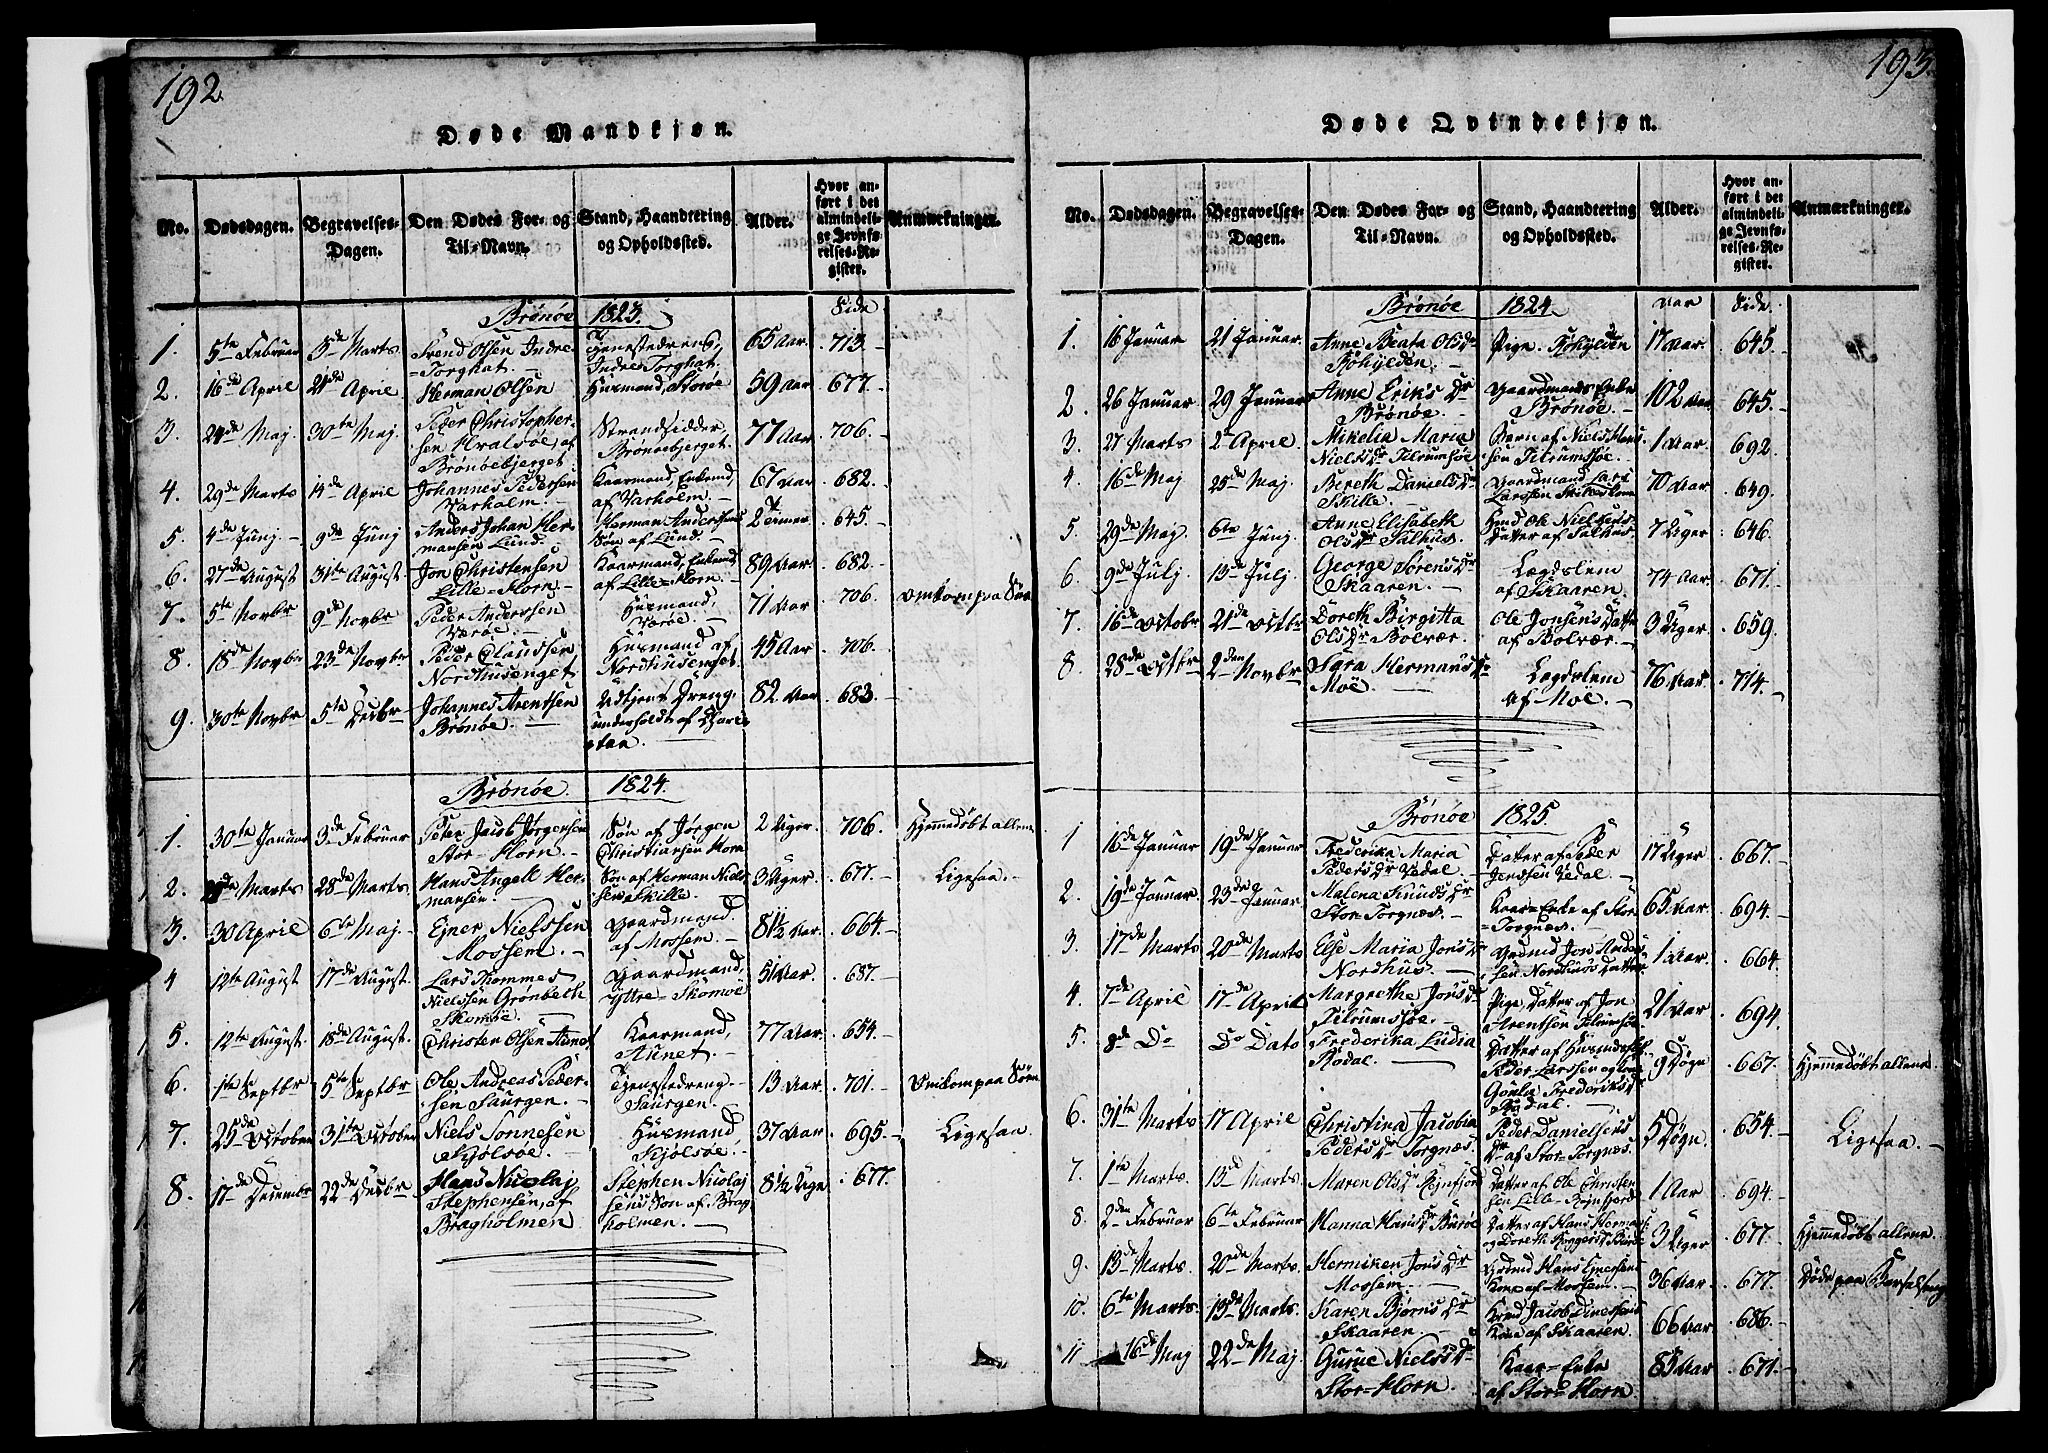 192
Døde Mandkjøn.
No. Dødsdagen. Begravelses-Dagen. Den Dødes For- og Til-Navn. Stand, Haandtering og Opholdssted. Alder. Hvor anført i det almindelige Jevnførelses-Register. Anmærkninger.
Brønøe 1823. Side
1. 5te Februar 3de Marts Svend Olsen Indre Torghat. Tjenestedreng, Indre Torghat. 65 Aar. 713.
2. 16de April 21de April Herman Olsen Husmand, Storøe 59 Aar 677.
3. 24de Maj 30te Maj. Peder Christophersen Hvalsøe, af Brønøebjerget. Strandsidder Brønøebjerget. 77 Aar. 706.
4. 29de Marts 14de April Johannes Pedersen Varholm. Kaarmand, Enkemd, af Varholm. 67 Aar 682.
5. 4de Junj 9de Junj Anders Johan Hermansen Lund. Herman Andersens Søn af Lund. 645.
6. 27de August 31te August Jon Christensen Lille-Horn. Kaarmand, Enkemd, af Lille-Horn. 89 Aar. 682.
7. 5te Novbr 9de Novbr Peder Andersen Værøe. Husmand, Værøe. 71 Aar 706. Omkom paa Søen
8. 18de Novbr 23de Novbr Peder Claussen Nordhusenget Husmand af Nordhusenget. 45 Aar 706.
9. 30te Novbr 5te Decbr Johannes Arentsen Brønøe. Udtjent Dreng, underholdt af 82 Aar 683.
Brønøe. 1824.
1. 30te Januar 3de Februar Peter Jacob Jørgensen Stor-Horn. Søn af Jørgen Christiansen Horn 2 Uger. 706. Hjemmedøbt allene
2. Marts 28de Marts Hans Angell Hermansen. Søn af Herman Nielssen Skille. 3 Uger. 677. Ligesaa.
3. 30 April 6te Maj. Ejner Nielssen Mossem. Gaardmand. af Mossem. 81½ Aar. 664.
4 12te August 17de August. Lars Thommes Nielssen Grønbech Skomøe. Gaardmand, Yttre-Skomøe 51 Aar. 687.
5. 12te August. 18de August. Christen Olsen Aunet Kaarmand, Aunet. 77 Aar. 654.
6. 1te Septbr 5te Septbr Ole Andreas Pedersen Saurgen. Tjenestedreng Saurgen. 13 Aar. 701. Omkom paa Søen
7. 25de October 31te October Niels Sonnesen Skjølsøe. Husmand, Skjølsøe. 37 Aar 695. Ligesaa.
8. 17de December 22de Decbr Hans Nicolaj Stephensen, af Bragholmen Stephen Nicolaj sens Søn af Bragholmen. 8½ Uge 677.
193.
Døde Qvindekjøn.
No. Dødsdagen. Begravelses-Dagen. Den Dødes For- og Til-Navn. Stand, Haandtering og Opholdssted. Alder. Hvor anført i det almindelige Jevnførelses-Register. Anmærkninger.
Brønøe 1824. Aar Side.
1. 16 Januar 21 Januar. Anne Beata Olsdr Pige. 17 Aar. 645.
2. 26 Januar 29 Januar Anne Eriks Dr Brønøe. Gaardmands Enke Brønøe. 102 Aar 645.
3. 27 Marts 2 April. Mikelia Maria Niels Dr Tilrumsøe Barn af Niels Hansen Tilrumsøe. 1 Aar. 692.
4. 16de Maj 25de Maj. Bereth Daniels Dr Skille. Gaardmand Lars Larssen 70 Aar 649.
5. 29de Maj 6te Junj. Anne Elisabeth Ols Dr Salhus. Datter af Salhus. 7 Uger 646.
6. 9de Julj 13de Julj. George Sørens Dr Skaaren. Lægdslem af Skaaren. 74 Aar. 671.
7. 16de Octobr 21de Octbr Doreth Birgitta Ols Dr Bolvær. Ole Jonsens Datter af Bolvær. 3 Uger. 659.
8. 28de Octbr 2den Novbr Sara Hermans Dr Moe. Lægdslem af Moe. 76 Aar. 714.
Brønøe 1825.
1 16de Januar 19de Januar Frederika Maria Peders Dr Vedal. Datter af Peder Jenssen Vedal. 17 Uger 667.
2. 19de Januar. 23de Januar Malena Knuds Dr Stor-Torgnæs. Kaar-Enke af Stor-Torgnæs. 65 Aar. 694.
3. 17de Marts 20de Marts Else Maria Jons Dr Nordhus. Jon Andersen Nordhus Datter. 1 Aar. 664.
4. 7de April 17de April Margrethe Jons Dr Tilrumsøe. Pige, Datter af Jon Arentsen Tilrumsøe 21 Aar 694.
5. 8de Do Do Dato Frederika Ludia Rodal. Datter af Husmand Peder Larssen Frederiks Dr Rodal. 9 Døgn 667. Hjemmedøbt allene.
6. 31te Marts 17 April Christina Jacobia Peders Dr Torgnæs. Peder Danielsens Dr af Stor-Torgnæs. 5 Døgn. 654. Ligesaa.
7. 1te Marts. 13de Marts. Maren Ols Dr Datter af Ole Christensen Lille- 1 Aar 694.
8. 2den Februar 6te Februar Hanna Hans Dr Burøe Datter af Hans og Doreth 3 Uger 677. Hjemmedøbt allene.
9. 13de Marts. 20de Marts. Hermiken Jons Dr Mossem. Hans Ejnersens Kone af Mossem. 36 Aar. 677. Døde paa Barselseng
10. 6te Marts. 13de Marts. Karen Bjørns Dr Skaaren. Jacob Dinessens Kone af Skaaren. 66 Aar. 686.
11 16de Maj 22de Maj. Gurue Niels Dr Stor-Horn. Kaar-Enke af Stor-Horn 85 Aar 671.